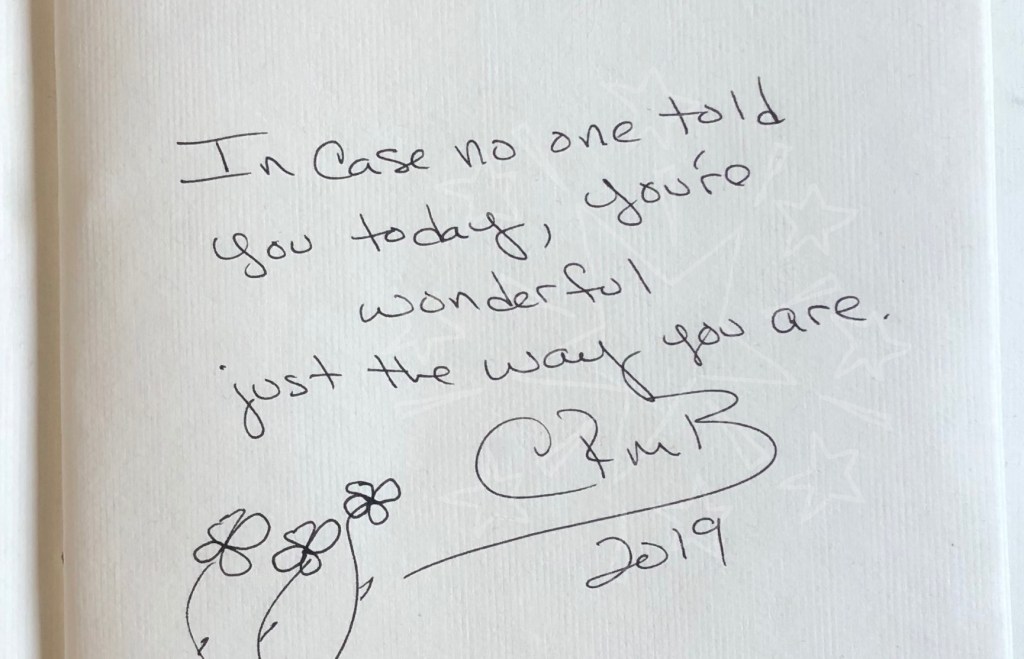 In Case no one told
you today, you're
wonderful
just the way you are.
CRMB
2019